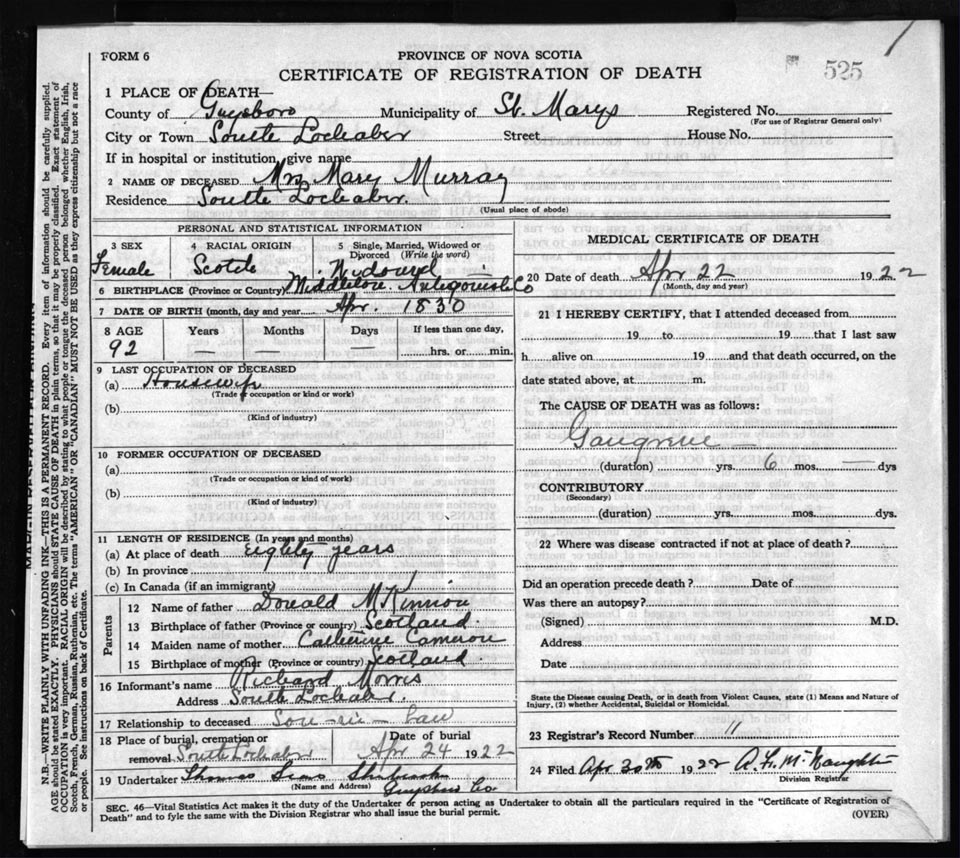 FORM 6
PROVINCE OF NOVA SCOTIA
CERTIFICATE OF REGISTRATION OF DEATH
525
1 PLACE OF DEATH—
County of Guysboro Municipality of St. Marys Registered No.
(For use of Registrar General only)
City or Town South Lochaber Street House No.
If in hospital or institution, give name
2 NAME OF DECEASED Mrs Mary Murray
Residence South Lochaber.
(Usual place of abode)
PERSONAL AND STATISTICAL INFORMATION
3 SEX 4 RACIAL ORIGIN 5 Single, Married, Widowed or Divorced (Write the word)
Female Scotch Widowed
6 BIRTHPLACE (Province or Country) Antigonish Co
7 DATE OF BIRTH (month, day and year) Apr. 1830
8 AGE Years Months Days If less than one day,
92 — — — hrs. or min.
9 LAST OCCUPATION OF DECEASED
(a) Housewife
(Trade or occupation or kind or work)
(b)
(Kind of industry)
10 FORMER OCCUPATION OF DECEASED
(a)
(Trade or occupation or kind of work)
(b)
(Kind of industry)
11 LENGTH OF RESIDENCE (In years and months)
(a) At place of death Eighty years
(b) In province
(c) In Canada (if an immigrant)
Parents
12 Name of father Donald McKinnon
13 Birthplace of father (Province or country) Scotland.
14 Maiden name of mother Catherine Cameron
15 Birthplace of mother (Province or country) Scotland
16 Informant's name Richard Morris
Address South Lochaber.
17 Relationship to deceased Son-in-law
18 Place of burial, cremation or removal South Lochaber Date of burial Apr 24 1922
19 Undertaker Thomas Sims
(Name and Address) Guysboro Co.
MEDICAL CERTIFICATE OF DEATH
20 Date of death Apr 22 1922
(Month, day and year)
21 I HEREBY CERTIFY, that I attended deceased from
19 to 19 that I last saw
h alive on 19 and that death occurred, on the
date stated above, at m.
The CAUSE OF DEATH was as follows:
Gangrene
(duration) yrs. 6 mos. — dys
CONTRIBUTORY
(Secondary)
(duration) yrs. mos. dys.
22 Where was disease contracted if not at place of death?
Did an operation precede death? Date of
Was there an autopsy?
(Signed) M.D.
Address
Date
State the Disease causing Death, or in death from Violent Causes, state (1) Means and Nature of
Injury, (2) whether Accidental, Suicidal or Homicidal.
23 Registrar's Record Number 11
24 Filed Apr 30th 1922 McNaughton
Division Registrar
SEC. 46—Vital Statistics Act makes it the duty of the Undertaker or person acting as Undertaker to obtain all the particulars required in the "Certificate of Registration of
Death" and to fyle the same with the Division Registrar who shall issue the burial permit.
(OVER)
N.B.—WRITE PLAINLY WITH UNFADING INK—THIS IS A PERMANENT RECORD. Every item of information should be carefully supplied.
AGE should be stated EXACTLY. PHYSICIANS should STATE CAUSE OF DEATH in plain terms, so that it may be properly classified. Exact statement of
OCCUPATION is very important. RACIAL ORIGIN will be described by stating to what people or tongue the deceased person belonged whether English, Irish,
Scotch, French, German, Russian, Ruthenian, etc. The terms "AMERICAN" OR "CANADIAN" MUST NOT BE USED as they express citizenship but not a race
or people. See instructions on back of Certificate.